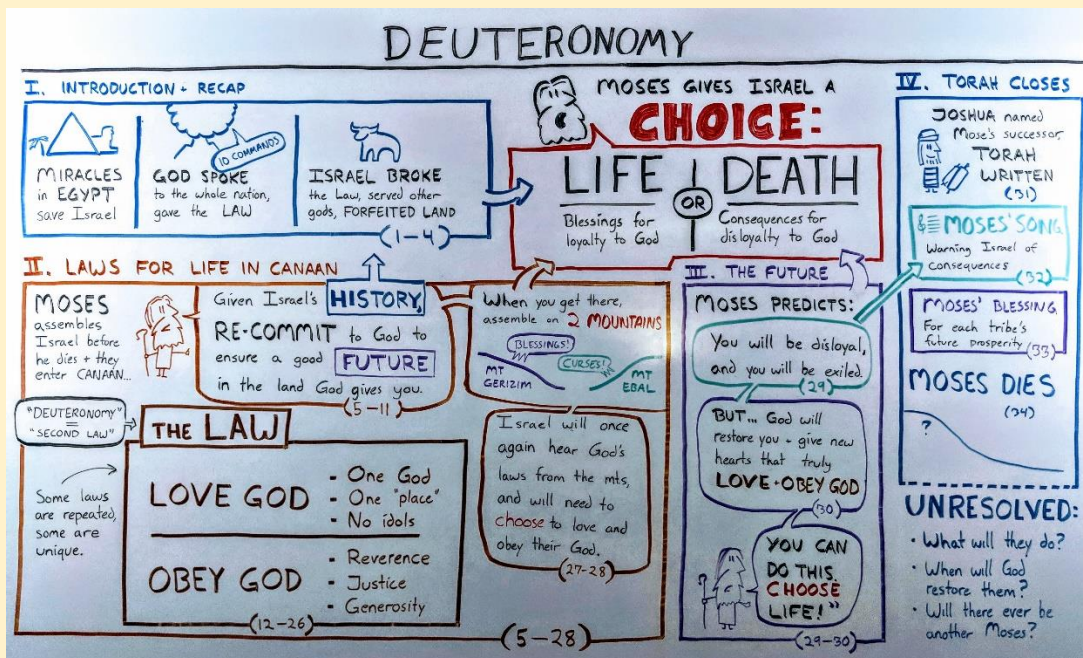 DEUTERONOMY
I. INTRODUCTION + RECAP
MIRACLES
in EGYPT
save Israel
10 COMMANDS
GOD SPOKE
to the whole nation,
gave the LAW
ISRAEL BROKE
the Law, served other
gods, FORFEITED LAND
(1-4)
MOSES GIVES ISRAEL A
CHOICE:
LIFE
Blessings for
loyalty to God
OR
DEATH
Consequences for
disloyalty to God
II. LAWS FOR LIFE IN CANAAN
MOSES
assembles
Israel before
he dies + they
enter CANAAN...
Given Israel's HISTORY,
RE-COMMIT to God to
ensure a good FUTURE
in the land God gives you.
(5-11)
"DEUTERONOMY"
=
"SECOND LAW"
Some laws
are repeated,
some are
unique.
THE LAW
LOVE GOD
- One God
- One "place"
- No idols
OBEY GOD
- Reverence
- Justice
- Generosity
(12-26)
When you get there,
assemble on 2 MOUNTAINS
BLESSINGS!
CURSES!
MT
GERIZIM
MT
EBAL
Israel will once
again hear God's
laws from the mts,
and will need to
choose to love and
obey their God.
(27-28)
(5-28)
III. THE FUTURE
MOSES PREDICTS:
You will be disloyal,
and you will be exiled.
(29)
BUT... God will
restore you + give new
hearts that truly
LOVE + OBEY GOD
(30)
YOU CAN
DO THIS.
CHOOSE
LIFE!"
(29-30)
IV. TORAH CLOSES
JOSHUA named
Mose's successor,
TORAH
WRITTEN
(31)
MOSES' SONG
Warning Israel of
consequences
(32)
MOSES' BLESSING
For each tribe's
future prosperity
(33)
MOSES DIES
(34)
?
UNRESOLVED:
• What will they do?
• When will God
restore them?
• Will there ever be
another Moses?